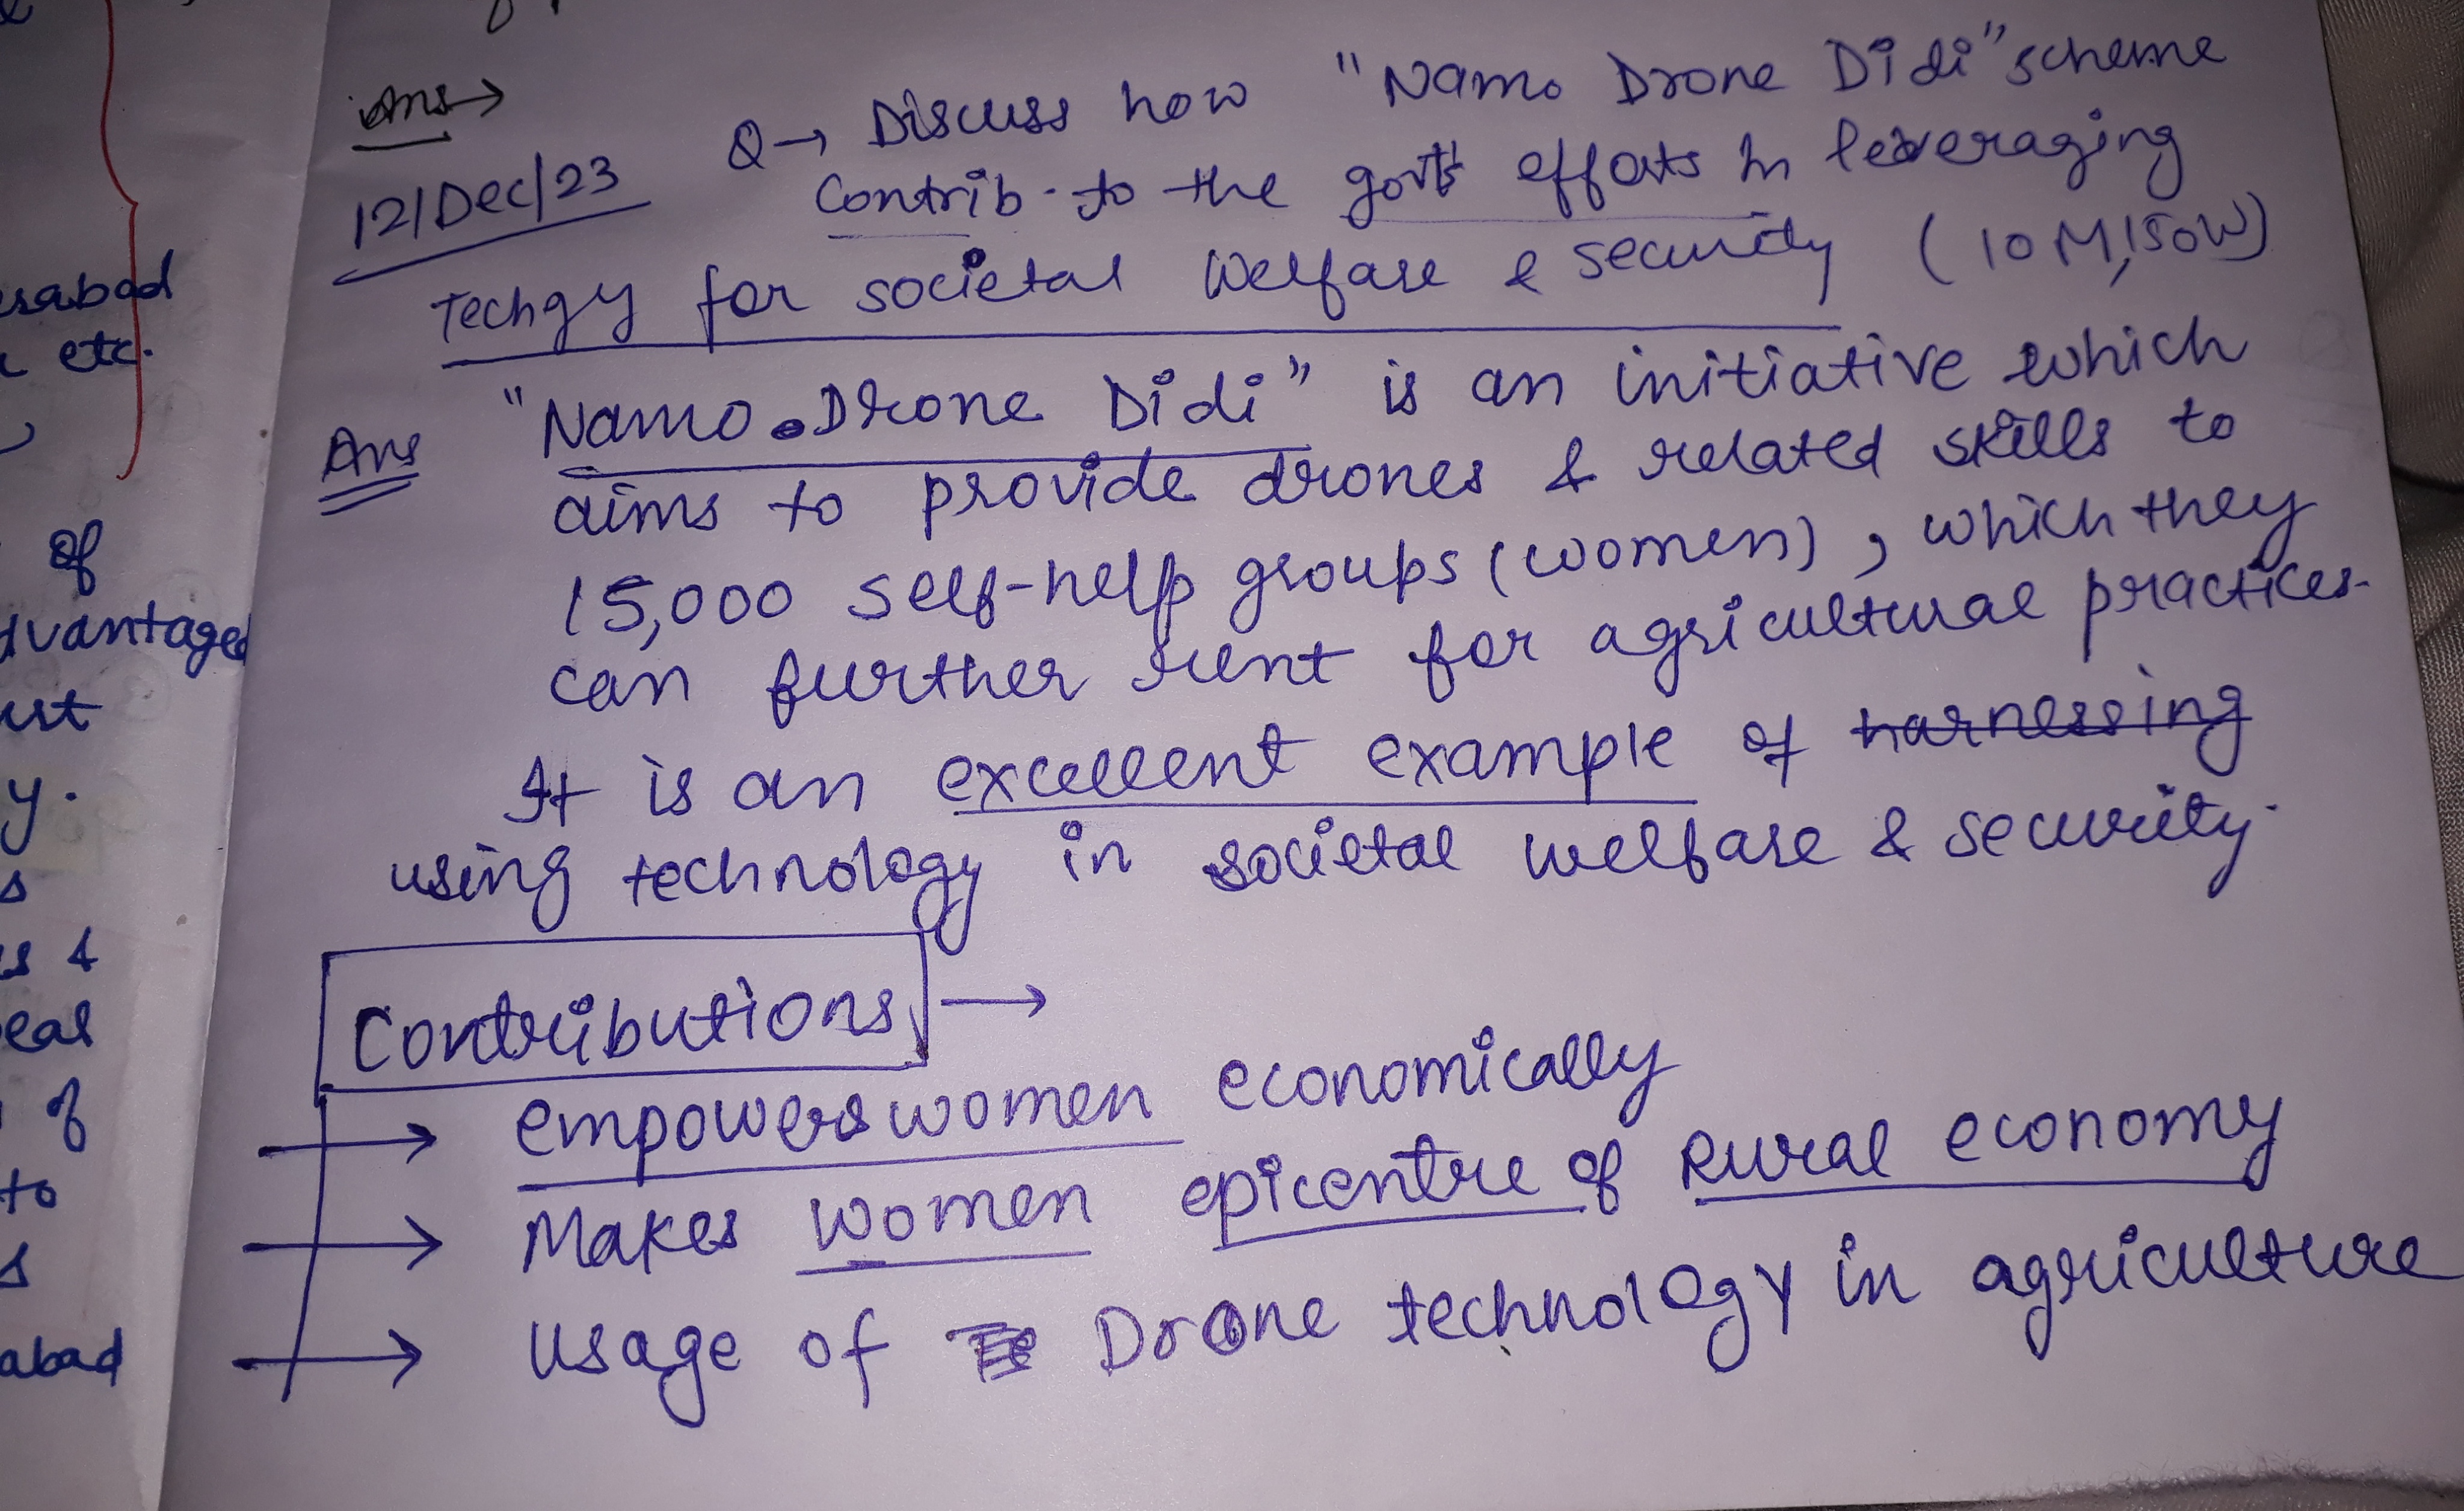 Ans→
12/Dec/23
Q→ Discuss how "Namo Drone Didi" scheme
contrib. to the govt's efforts in leveraging
Techgy for societal welfare & security (10M,150W)
Ans "Namo Drone Didi" is an initiative which
aims to provide drones & related skills to
15,000 self-help groups (women), which they
can further rent for agricultural practices.
It is an excellent example of harnessing
using technology in societal welfare & security.
Contributions →
→ empowers women economically
→ Makes women epicentre of Rural economy
→ Usage of Drone technology in agriculture
sabad
etc.
of
dvantaged
ust
y.
s
s &
eal
of
to
s
abad